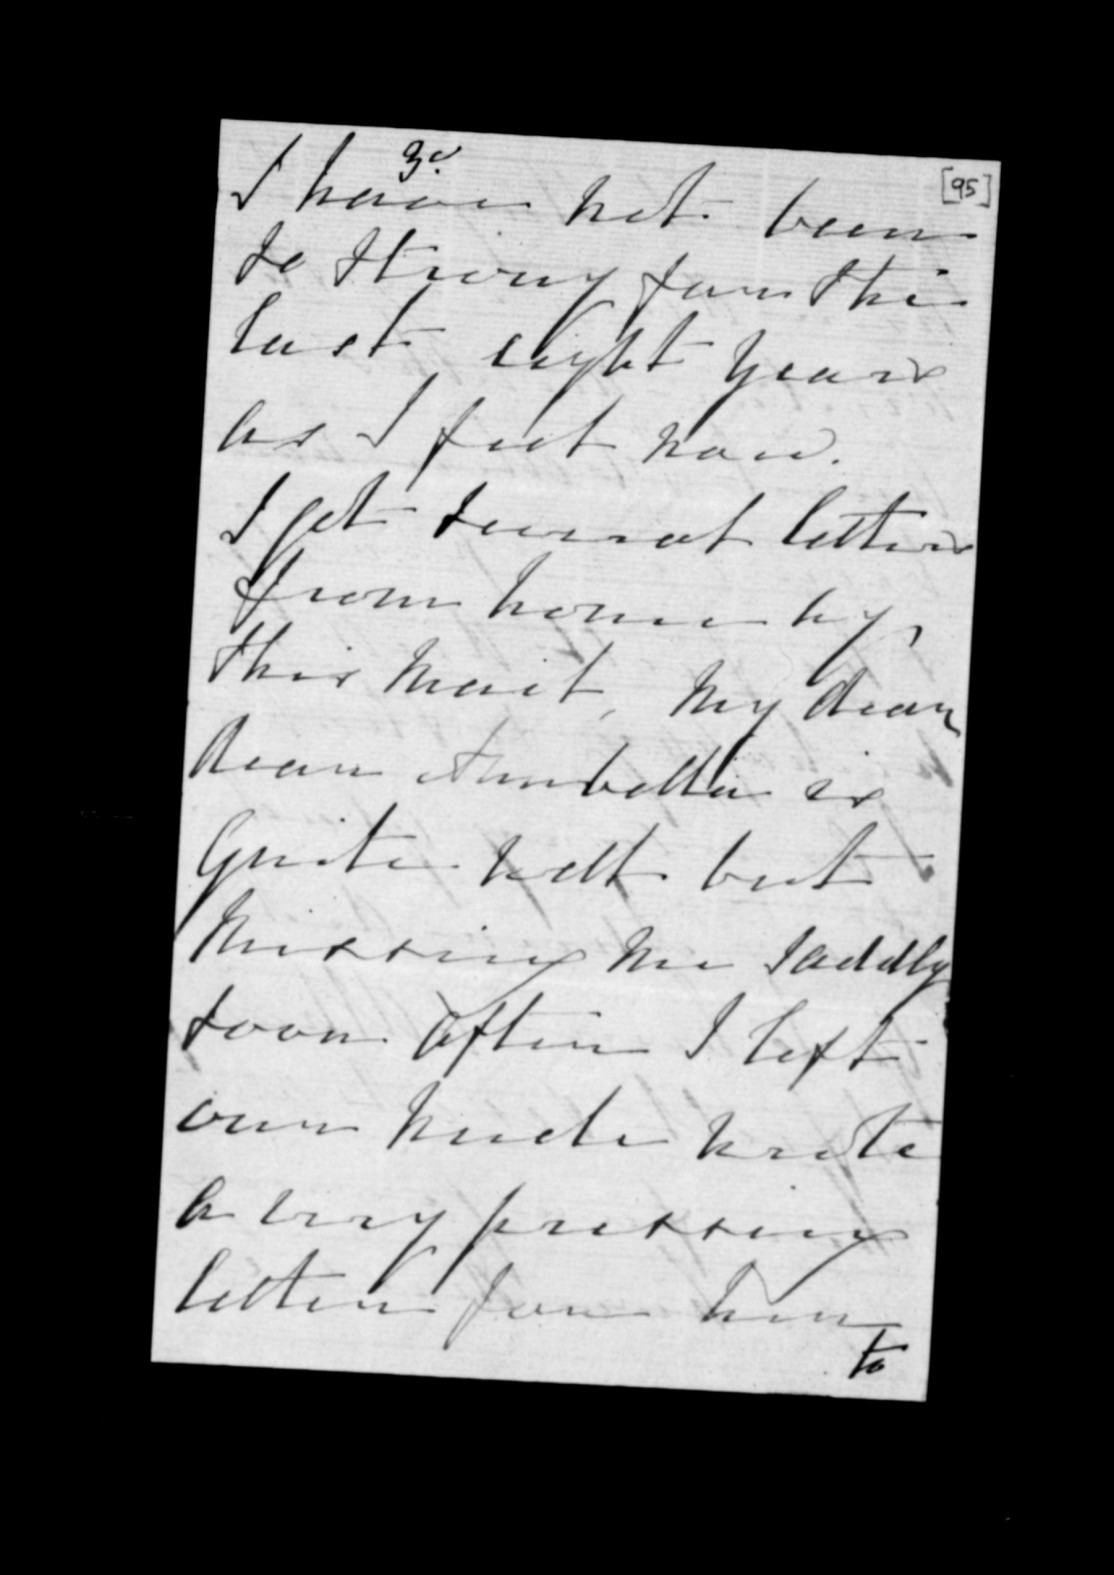 3d.
[95]
I have not been
so strong for the
last eight years
as I feel now.
I got several letters
from home by
this mail, my dear
dear Annabella is
quite well but
missing me saddly
soon after I left
our Uncle wrote
a very pressing
letter for him
to